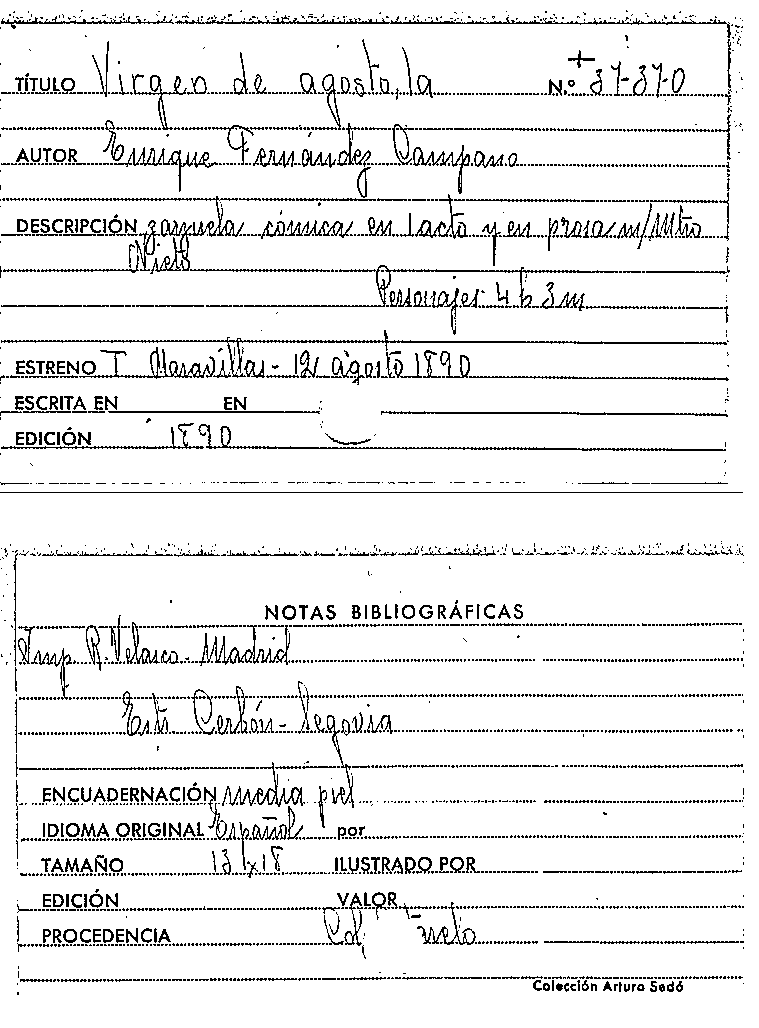 TÍTULO Virgen de agosto, la N.º 37-37-0
AUTOR Enrique Fernández Campano
DESCRIPCIÓN zarzuela cómica en 1 acto y en prosa m/Mtro
Nieto
Personajes 4 h 3 m
ESTRENO T Maravillas - 12 agosto 1890
ESCRITA EN EN
EDICIÓN 1890
NOTAS BIBLIOGRÁFICAS
Imp R. Velasco - Madrid
Cerbón - Segovia
ENCUADERNACIÓN media piel
IDIOMA ORIGINAL Español por
TAMAÑO ILUSTRADO POR
EDICIÓN VALOR
PROCEDENCIA Col
Colección Arturo Sedó